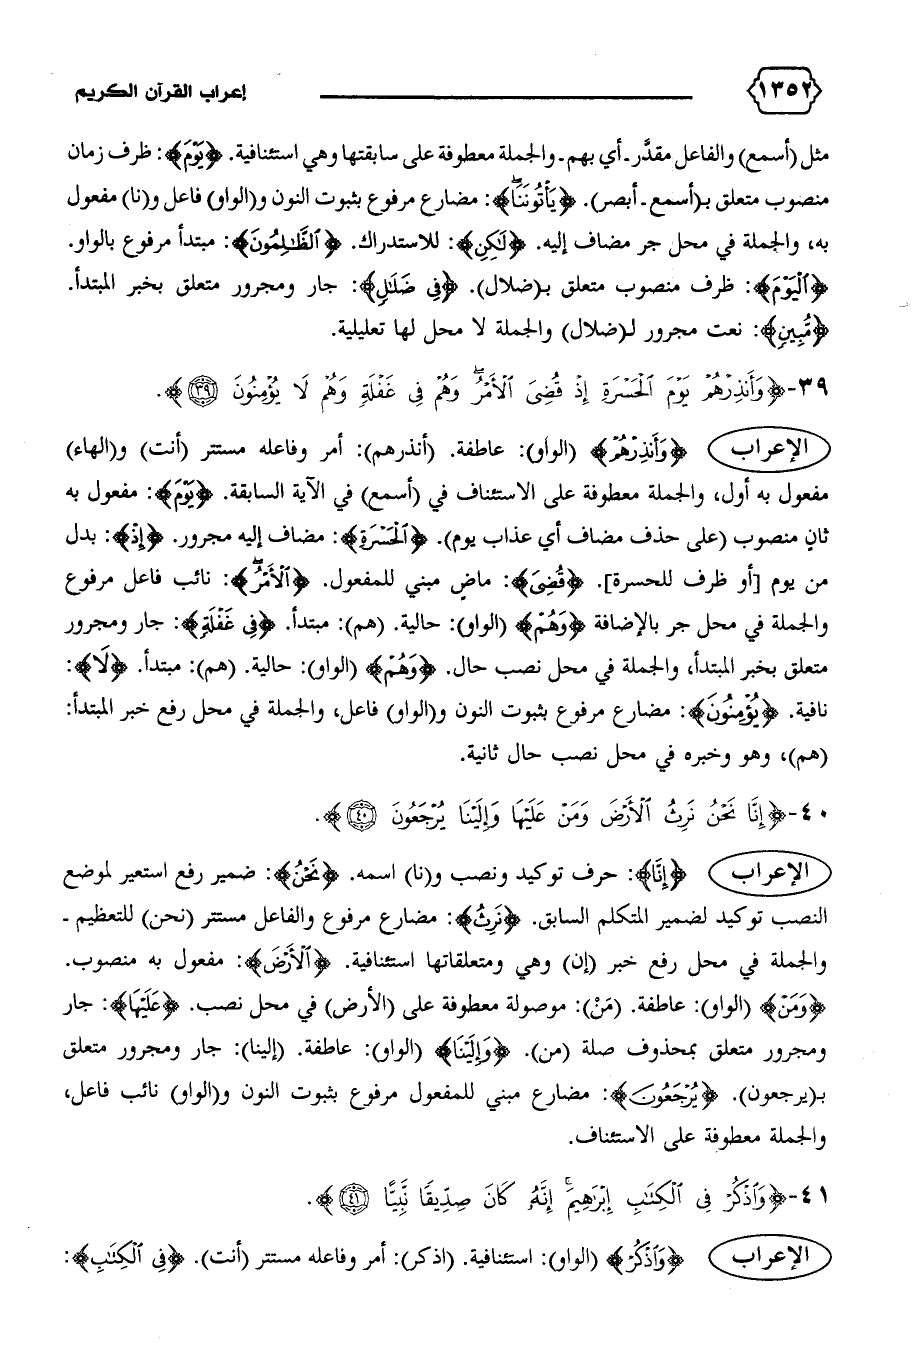 ١٣٥٢ إعراب القرآن الكريم
مثل (أسمع) والفاعل مقدَّر ـ أي بهم ـ والجملة معطوفة على سابقتها وهي استئنافية. ﴿يَوْمَ﴾: ظرف زمان
منصوب متعلق بـ(أسمع ـ أبصر). ﴿يَأْتُونَنَا﴾: مضارع مرفوع بثبوت النون و(الواو) فاعل و(نا) مفعول
به، والجملة في محل جر مضاف إليه. ﴿لَٰكِنِ﴾: للاستدراك. ﴿ٱلظَّٰلِمُونَ﴾: مبتدأ مرفوع بالواو.
﴿ٱلْيَوْمَ﴾: ظرف منصوب متعلق بـ(ضلال). ﴿فِى ضَلَٰلٍ﴾: جار ومجرور متعلق بخبر المبتدأ.
﴿مُّبِينٍ﴾: نعت مجرور لـ(ضلال) والجملة لا محل لها تعليلية.
٣٩- ﴿وَأَنذِرْهُمْ يَوْمَ ٱلْحَسْرَةِ إِذْ قُضِىَ ٱلْأَمْرُ ۖ وَهُمْ فِى غَفْلَةٍ وَهُمْ لَا يُؤْمِنُونَ ٣٩﴾.
الإعراب ﴿وَأَنذِرْهُمْ﴾ (الواو): عاطفة. (أنذرهم): أمر وفاعله مستتر (أنت) و(الهاء)
مفعول به أول، والجملة معطوفة على الاستئناف في (أسمع) في الآية السابقة. ﴿يَوْمَ﴾: مفعول به
ثانٍ منصوب (على حذف مضاف أي عذاب يوم). ﴿ٱلْحَسْرَةِ﴾: مضاف إليه مجرور. ﴿إِذْ﴾: بدل
من يوم [أو ظرف للحسرة]. ﴿قُضِىَ﴾: ماضٍ مبني للمفعول. ﴿ٱلْأَمْرُ ۖ﴾: نائب فاعل مرفوع
والجملة في محل جر بالإضافة ﴿وَهُمْ﴾ (الواو): حالية. (هم): مبتدأ. ﴿فِى غَفْلَةٍ﴾: جار ومجرور
متعلق بخبر المبتدأ، والجملة في محل نصب حال. ﴿وَهُمْ﴾ (الواو): حالية. (هم): مبتدأ. ﴿لَا﴾:
نافية. ﴿يُؤْمِنُونَ﴾: مضارع مرفوع بثبوت النون و(الواو) فاعل، والجملة في محل رفع خبر المبتدأ:
(هم)، وهو وخبره في محل نصب حال ثانية.
٤٠- ﴿إِنَّا نَحْنُ نَرِثُ ٱلْأَرْضَ وَمَنْ عَلَيْهَا وَإِلَيْنَا يُرْجَعُونَ ٤٠﴾.
الإعراب ﴿إِنَّا﴾: حرف توكيد ونصب و(نا) اسمه. ﴿نَحْنُ﴾: ضمير رفع استعير لموضع
النصب توكيد لضمير المتكلم السابق. ﴿نَرِثُ﴾: مضارع مرفوع والفاعل مستتر (نحن) للتعظيم ـ
والجملة في محل رفع خبر (إن) وهي ومتعلقاتها استئنافية. ﴿ٱلْأَرْضَ﴾: مفعول به منصوب.
﴿وَمَنْ﴾ (الواو): عاطفة. (مَنْ): موصولة معطوفة على (الأرض) في محل نصب. ﴿عَلَيْهَا﴾: جار
ومجرور متعلق بمحذوف صلة (من). ﴿وَإِلَيْنَا﴾ (الواو): عاطفة. (إلينا): جار ومجرور متعلق
بـ(يرجعون). ﴿يُرْجَعُونَ﴾: مضارع مبني للمفعول مرفوع بثبوت النون و(الواو) نائب فاعل،
والجملة معطوفة على الاستئناف.
٤١- ﴿وَٱذْكُرْ فِى ٱلْكِتَٰبِ إِبْرَٰهِيمَ ۚ إِنَّهُۥ كَانَ صِدِّيقًا نَّبِيًّا ٤١﴾.
الإعراب ﴿وَٱذْكُرْ﴾ (الواو): استئنافية. (اذكر): أمر وفاعله مستتر (أنت). ﴿فِى ٱلْكِتَٰبِ﴾: